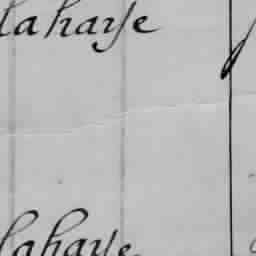 lahaye
lahaye